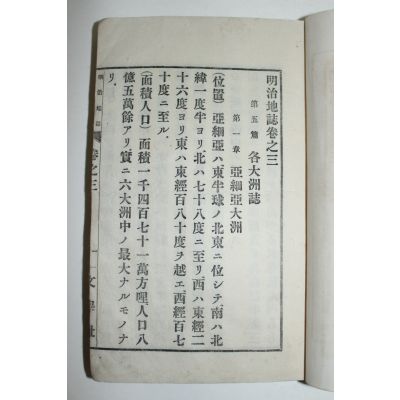 明治地誌卷之三
第五篇 各大洲誌
第一章 亞細亞大洲
(位置) 亞細亞ハ東半球ノ北東ニ位シテ南ハ北
緯一度半ヨリ北ハ七十八度ニ至リ西ハ東經二
十六度ヨリ東ハ東經百八十度ヲ越エ西經百七
十度ニ至ル
(面積人口) 面積一千四百七十一萬方哩人口八
億五萬餘アリ實ニ六大洲中ノ最大ナルモノナ
リ
明治地誌 卷之三 一 文學社